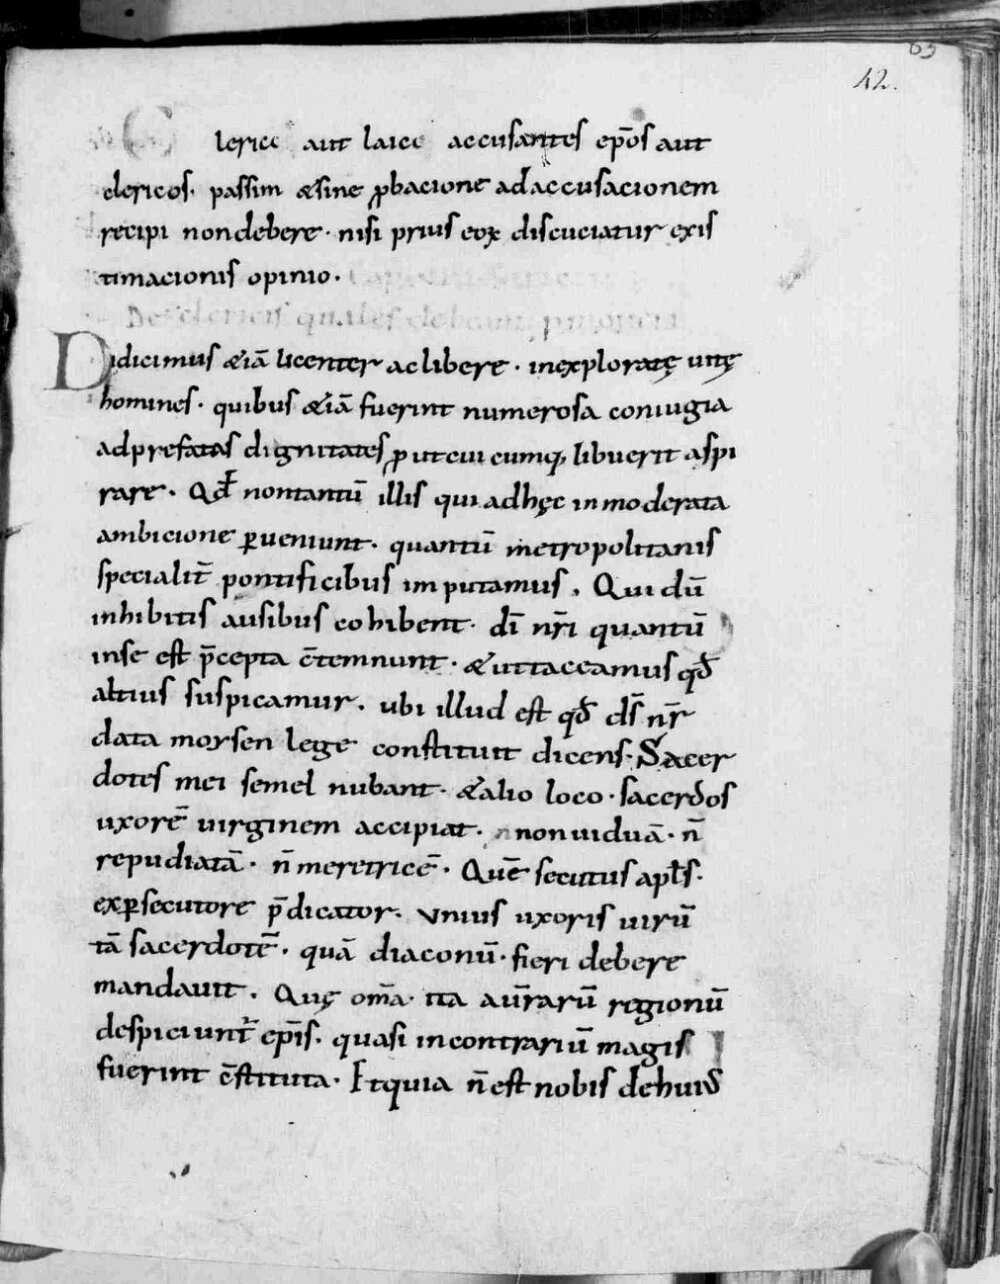 63
42.
lerici aut laici accusantes ep̄os aut
clericos. passim & sine ꝓbacione ad accusacionem
recipi non debere. nisi prius eoꝝ discuciatur exis
timacionis opinio.
De clericis quales debeant
Didicimus &iā licenter ac libere. inexploratę uitę
homines. quibus &iā fuerint numerosa coniugia
ad prefatas dignitates ꝓut cuicumq; libuerit aspi
rare. Qđ non tantū illis qui ad hęc inmoderata
ambicione ꝑueniunt. quantū metropolitanis
specialit̄ pontificibus imputamus. Qui dū
inhibitis ausibus cohibent. dī nr̄i quantū
in se est p̄cepta c̄temnunt. & ut taceamus qđ
altius suspicamur. ubi illud est qđ ds̄ nr̄
data moysen lege constituit dicens. Sacer
dotes mei semel nubant. & alio loco. sacerdos
uxorē virginem accipiat. non uiduā. n̄
repudiatā. n̄ meretricē. Quē secutus apls̄.
ex ꝑsecutore p̄dicator. unius uxoris uirū
tā sacerdotē. quā diaconū. fieri debere
mandauit. Quę om̄a ita aur̄arū regionū
despiciunt̄ ep̄is. quasi in contrariū magis
fuerint c̄stituta. Et quia n̄ est nobis de huiꝰ